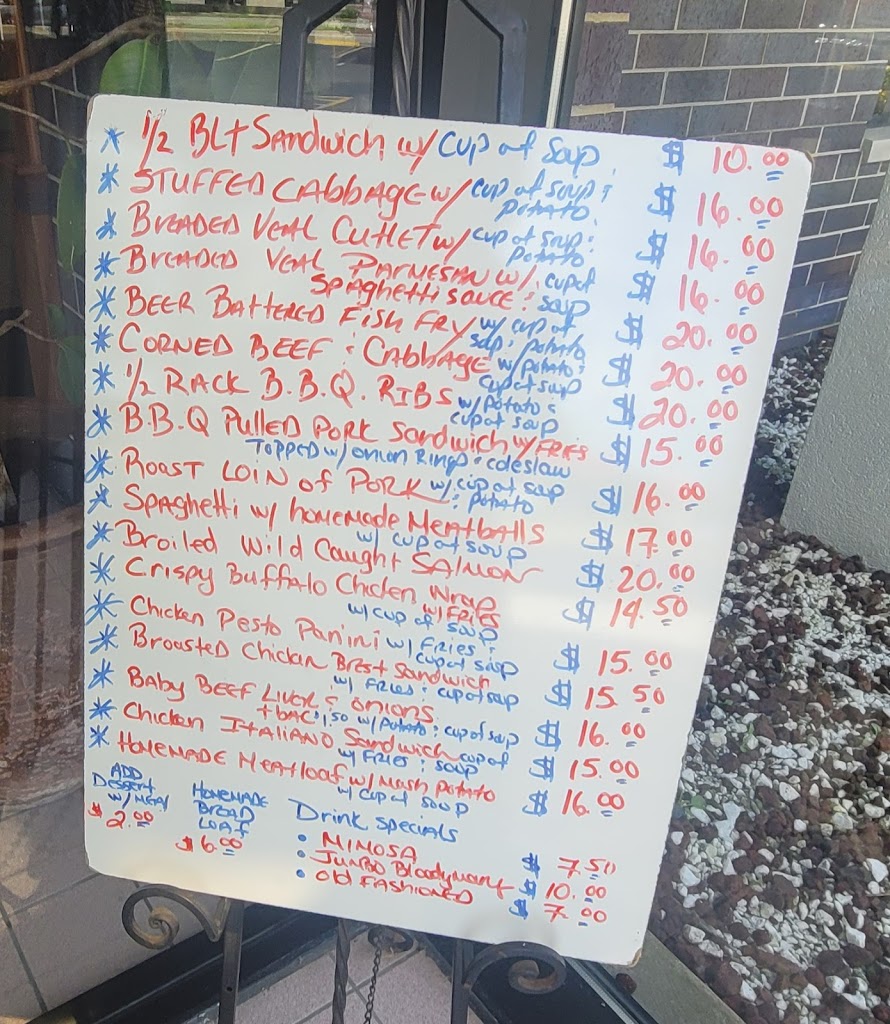 * 1/2 BLT Sandwich w/ cup of soup $ 10.00
* STUFFED CABBAGE w/ cup of soup & $ 16.00
potato
* BREADED VEAL CUTLET w/ cup of soup & $ 16.00
potato
* BREADED VEAL PARMESAN w/ cup of $ 16.00
Spaghetti sauce & soup
* BEER BATTERED FISH FRY w/ cup of $ 20.00
soup & potato
* CORNED BEEF & CABBAGE w/ potato & $ 20.00
cup of soup
* 1/2 RACK B.B.Q. RIBS w/ potato & $ 20.00
cup of soup
* B.B.Q Pulled PORK Sandwich w/ FRIES $ 15.00
TOPPED w/ onion Rings & coleslaw
* ROAST LOIN of PORK w/ cup of soup $ 16.00
& potato
* Spaghetti w/ homemade Meatballs $ 17.00
w/ cup of soup
* Broiled Wild Caught SALMON $ 20.00
* Crispy Buffalo Chicken Wrap $ 14.50
w/ FRIES
w/ cup of soup
* Chicken Pesto Panini w/ FRIES & $ 15.00
cup of soup
* Broasted Chicken Brest Sandwich $ 15.50
w/ FRIES & cup of soup
* BABY BEEF LIVER & onions $ 16.00
+ BAC 1.50 w/ potato & cup of soup
* Chicken ITALIANO Sandwich cup of $ 15.00
w/ FRIES & soup
* HOMEMADE Meatloaf w/ Mash potato $ 16.00
w/ cup of soup
ADD
Dessert
w/ MEAL
$ 2.00
HOMEMADE
BREAD
LOAF
$ 6.00
Drink specials
• MIMOSA $ 7.50
• JUMBO Bloodymary $ 10.00
• Old FASHIONED $ 7.00